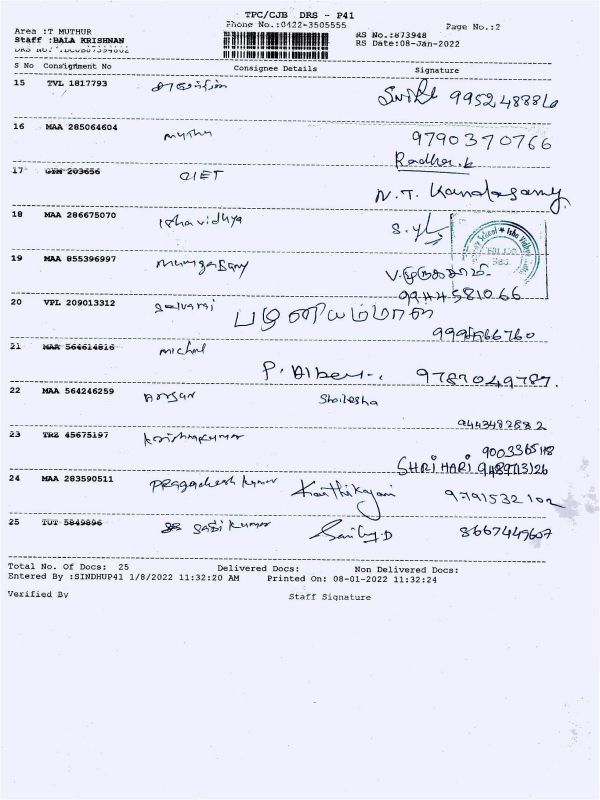 TPC/CJB DRS - P41
Phone No.:0422-3505555
Page No.:2
Area :T MUTHUR
RS No.:873948
Staff :BALA KRISHNAN
RS Date:08-Jan-2022
S No Consignment No Consignee Details Signature
15 TVL 1817793
16 MAA 285064604 muthu 9790370766
Radha.k
17 GYM 203656 CIET
N.T. Kandasamy.
18 MAA 286675070 Isha vidhya
19 MAA 855396997 murugasamy
9944581066
20 VPL 209013312 selvaraj
21 MAR 564614816 michal
P. Albert 9787049787.
22 MAA 564246259 Shailesha
9443482882
23 TRZ 45675197 krishnakumar
9003365118
SHRI HARI 9489713126
24 MAA 283590511 Pragadesh kumar Karthikayani 9791532102
25 TUT 5849896 Sasi kumar 8667449607
Total No. Of Docs: 25 Delivered Docs: Non Delivered Docs:
Entered By :SINDHUP41 1/8/2022 11:32:20 AM Printed On: 08-01-2022 11:32:24
Verified By Staff Signature